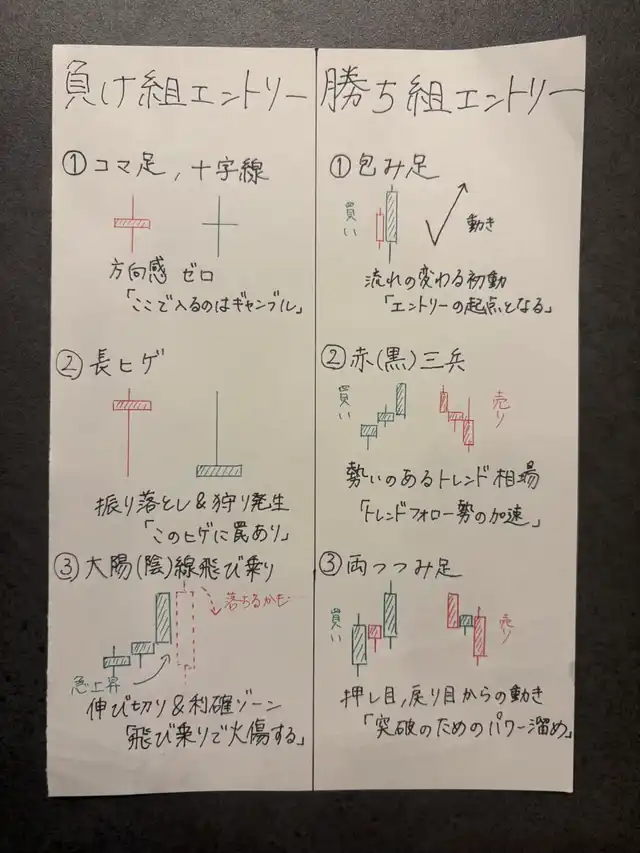 負け組エントリー
①コマ足,十字線
方向感 ゼロ
「ここで入るのはギャンブル」
②長ヒゲ
振り落とし&狩り発生
「このヒゲに罠あり」
③大陽(陰)線飛び乗り
落ちるかも
急上昇
伸び切り&利確ゾーン
「飛び乗りで火傷する」
勝ち組エントリー
①包み足
買い
動き
流れの変わる初動
「エントリーの起点となる」
②赤(黒)三兵
買い
売り
勢いのあるトレンド相場
「トレンドフォロー勢の加速」
③両つつみ足
買い
売り
押し目,戻り目からの動き
「突破のためのパワー溜め」